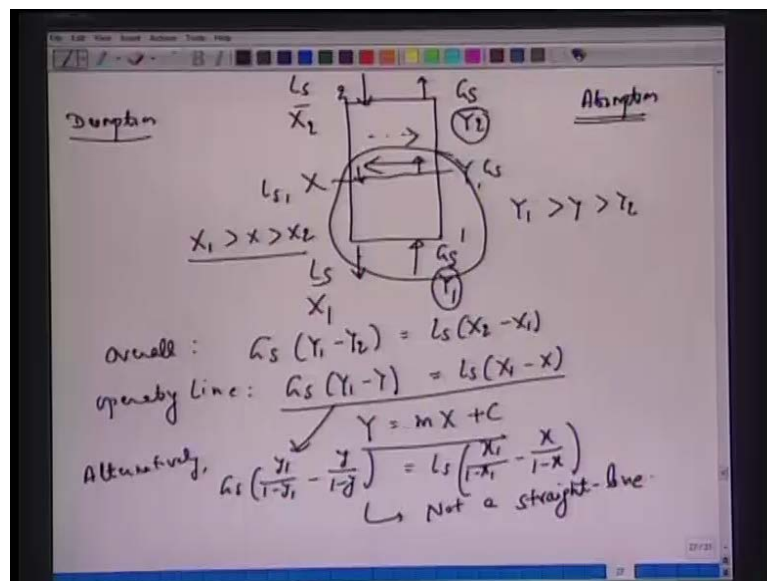 File Edit View Insert Actions Tools Help
Ls 2 Gs
Desorption X̄2 Y2 Absorption
Ls, X Y, Gs
X1 > X > X2 Y1 > Y > Y2
1
Ls Gs
X1 Y1
overall : Gs (Y1 - Y2) = Ls (X2 - X1)
Line : Gs (Y1 - Y) = Ls (X1 - X)
Y = mX + C
Alternatively, Gs (y1/1-y1 - y/1-y) = Ls (x1/1-x1 - x/1-x)
↳ Not a straight-line.
27/31
27